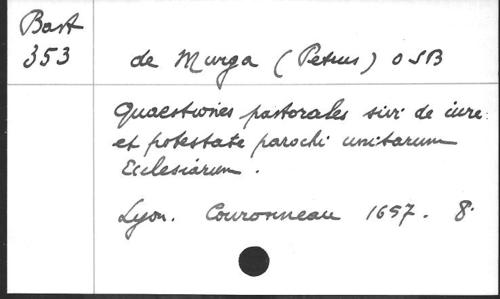 Bast
353
de Murga (Petrus) OSB
Quaestiones pastorales sivi de iure
et potestate parochi unitarum
Ecclesiarum.
Lyon. Couronneau 1657. 8.